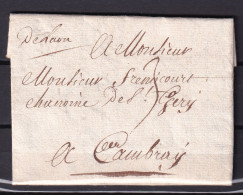 De Laon
A Monsieur
Monsieur frémicourt
chanoine de St Gery
A Cambray